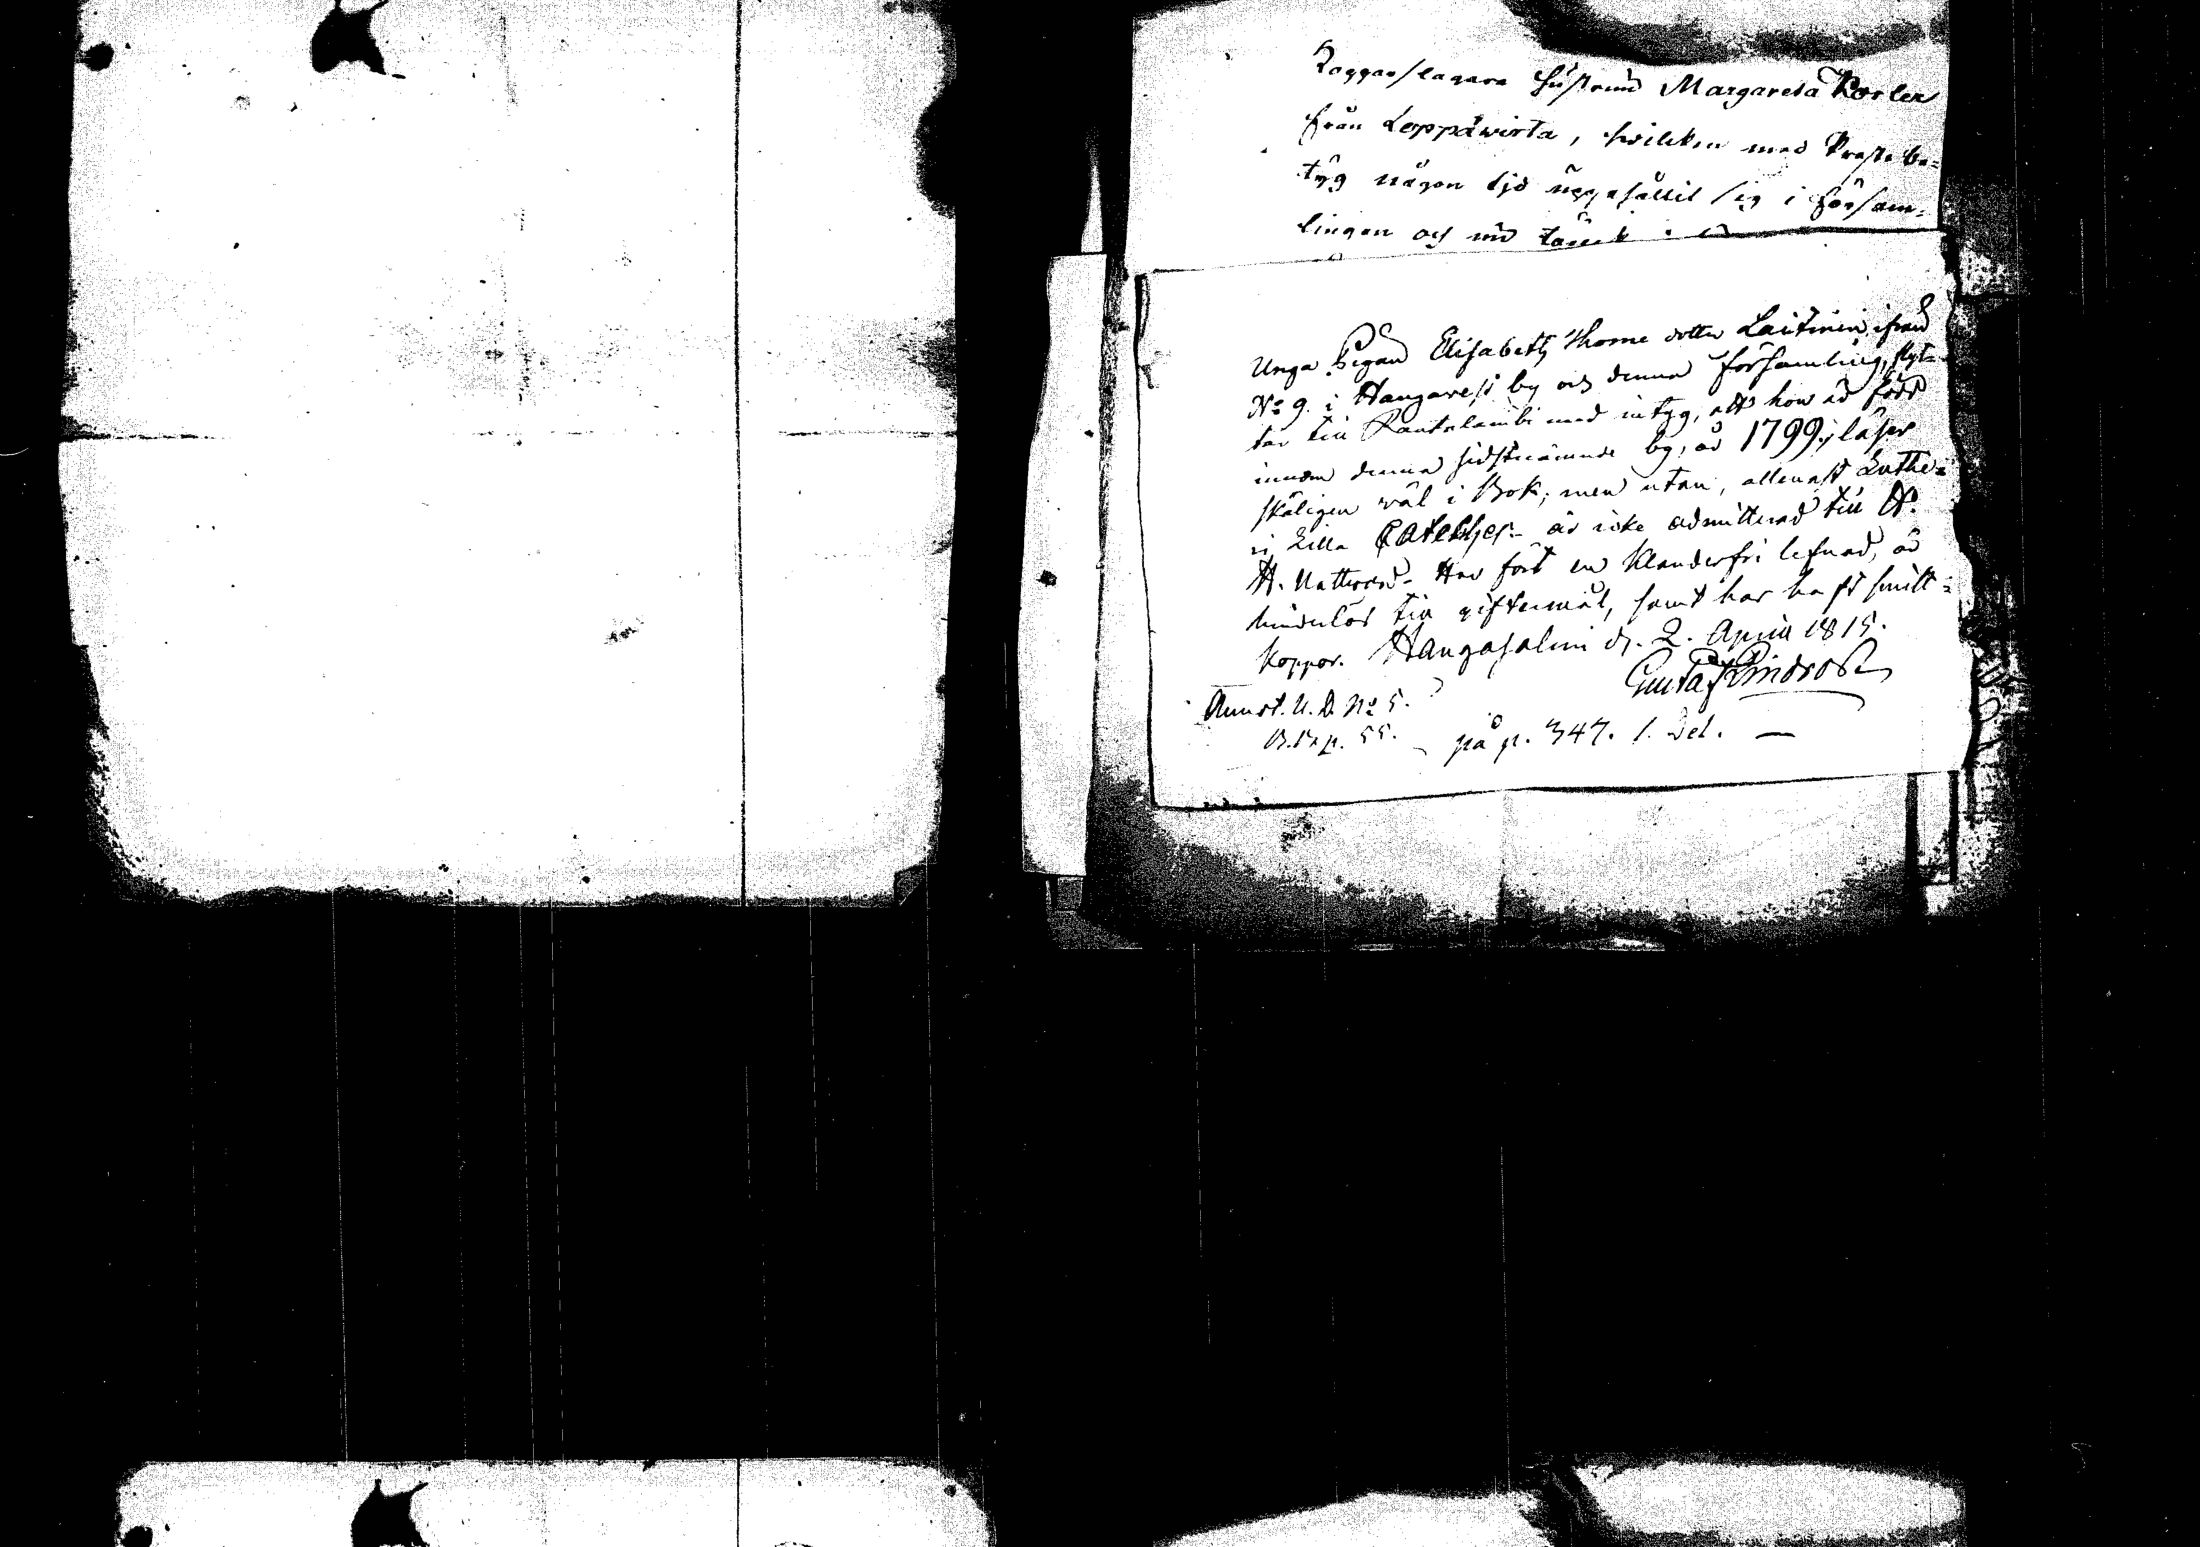 Kopparslagare Hustrun Margareta Kor len
från Leppäwirta, hvilken med Preste be=
tyg någon tid uppehållit sig i Försam=
lingen och nu
Unga Pigan Elisabeth Thome dotter Laitinen, ifrån
No 9. i Hangaresi by och denna församling, flyt=
tar till Rautalambi med intyg, att hon är född
innom denna sidstnämnde by, år 1799; läser
skäligen wäl i Bok; men utan, allenast Luthe=
ri Lilla Cateches. är icke admitterad till H.
H. Nattward. Har fört en klanderfri lefnad, är
hinderlös till giftermål, samt har haft smitt=
koppor. Hangasalmi d. 2. April 1815.
Gustaf
Annot. U. D. No 5.
p. 55. på p. 347. 1. Del. —